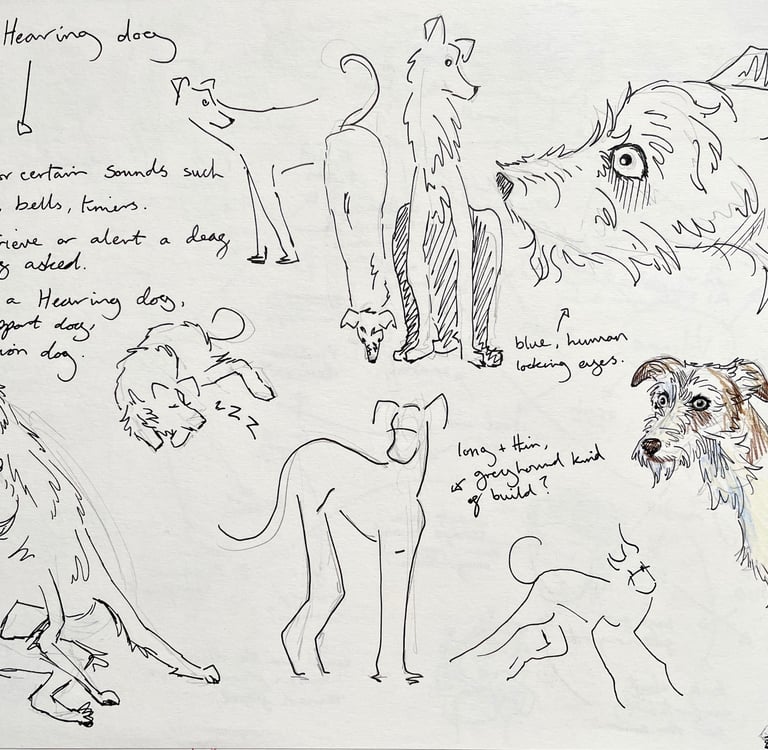 Hearing dog
or certain sounds such
, bells, timers.
rieve or alert a deag
asked.
a Hearing dog,
pport dog,
ion dog.
zzz
blue, human
looking eyes.
long + thin,
greyhound kind
of build?